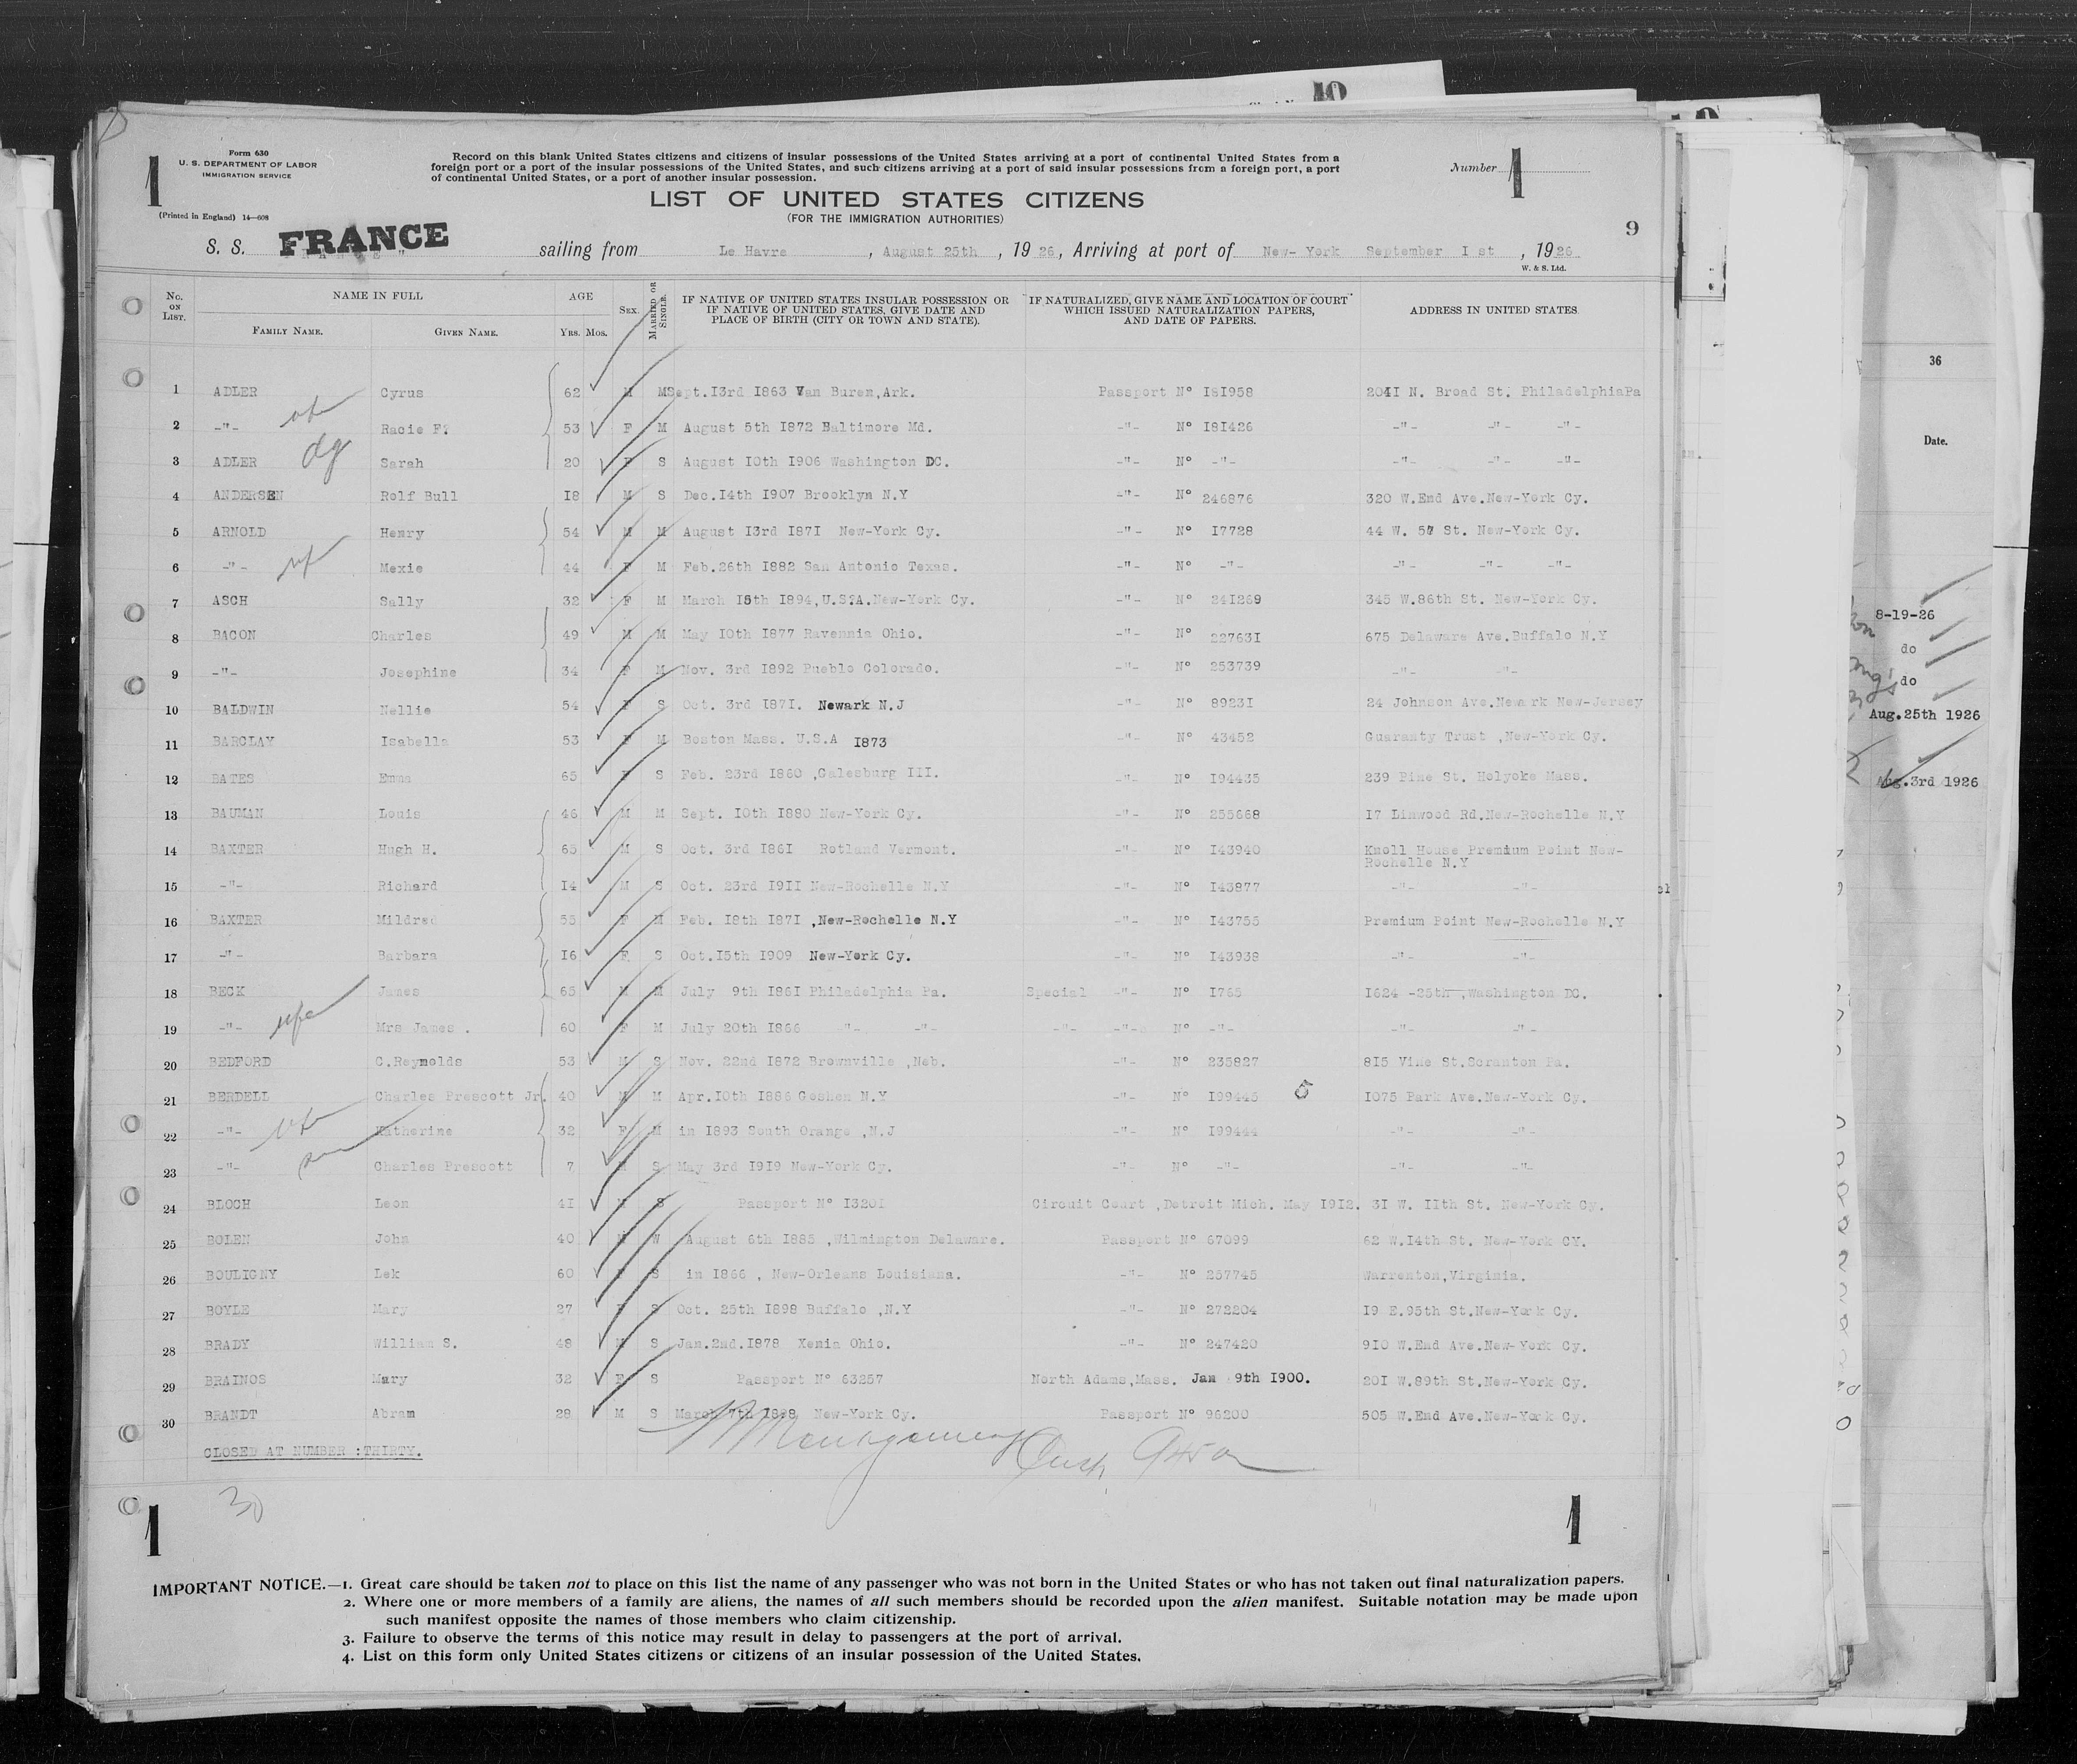 Form 630
U. S. DEPARTMENT OF LABOR
IMMIGRATION SERVICE
(Printed in England) 14—608
1
Record on this blank United States citizens and citizens of insular possessions of the United States arriving at a port of continental United States from a
foreign port or a port of the insular possessions of the United States, and such citizens arriving at a port of said insular possessions from a foreign port, a port
of continental United States, or a port of another insular possession.
Number 1
LIST OF UNITED STATES CITIZENS
(FOR THE IMMIGRATION AUTHORITIES)
9
S. S. FRANCE sailing from Le Havre , August 25th , 19 26, Arriving at port of New- York September I st , 19 26
W. & S. Ltd.
No. ON LIST. NAME IN FULL AGE Sex. MARRIED OR SINGLE. IF NATIVE OF UNITED STATES INSULAR POSSESSION OR IF NATIVE OF UNITED STATES, GIVE DATE AND PLACE OF BIRTH (CITY OR TOWN AND STATE). IF NATURALIZED, GIVE NAME AND LOCATION OF COURT WHICH ISSUED NATURALIZATION PAPERS, AND DATE OF PAPERS. ADDRESS IN UNITED STATES
FAMILY NAME. GIVEN NAME. YRS. MOS.
1 ADLER Cyrus 62 M M Sept.I3rd I863 Van Buren,Ark. Passport N° I8I958 204I N. Broad St. PhiladelphiaPa
2 -"- Racie F. 53 F M August 5th I872 Baltimore Md. -"- N° I8I426 -"- -"- -"-
3 ADLER Sarah 20 F S August I0th I906 Washington DC. -"- N° -"- -"- -"- -"-
4 ANDERSEN Rolf Bull I8 M S Dec.I4th I907 Brooklyn N.Y -"- N° 246876 320 W.End Ave.New-York Cy.
5 ARNOLD Henry 54 M M August I3rd I87I New-York Cy. -"- N° I7728 44 W. 57 St. New-York Cy.
6 -"- Mexie 44 F M Feb.26th I882 San Antonio Texas. -"- N° -"- -"- -"- -"-
7 ASCH Sally 32 F M March I5th I894,U.S.A.New-York Cy. -"- N° 24I269 345 W.86th St. New-York Cy.
8 BACON Charles 49 M M May I0th I877 Ravennia Ohio. -"- N° 22763I 675 Delaware Ave.Buffalo N.Y
9 -"- Josephine 34 F M Nov. 3rd I892 Pueblo Colorado. -"- N° 253739 -"- -"-
10 BALDWIN Nellie 54 F S Oct. 3rd I87I. Newark N.J -"- N° 8923I 24 Johnson Ave.Newark New-Jersey
11 BARCLAY Isabella 53 F M Boston Mass. U.S.A I873 -"- N° 43452 Guaranty Trust ,New-York Cy.
12 BATES Emma 65 F S Feb. 23rd I860 ,Galesburg III. -"- N° I94435 239 Pine St. Holyoke Mass.
13 BAUMAN Louis 46 M M Sept. I0th I880 New-York Cy. -"- N° 255668 I7 Linwood Rd.New-Rochelle N.Y
14 BAXTER Hugh H. 65 M S Oct. 3rd I86I Rotland Vermont. -"- N° I43940 Knoll House Premium Point New-
Rochelle N.Y
15 -"- Richard I4 M S Oct. 23rd I9II New-Rochelle N.Y -"- N° I43877 -"- -"-
16 BAXTER Mildred 55 F M Feb. I8th I87I ,New-Rochelle N.Y -"- N° I43755 Premium Point New-Rochelle N.Y
17 -"- Barbara I6 F S Oct.I5th I909 New-York Cy. -"- N° I43938 -"- -"-
18 BECK James 65 M M July 9th I86I Philadelphia Pa. Special -"- N° I765 I624 -25th ,Washington DC.
19 -"- Mrs James . 60 F M July 20th I866 -"- -"- -"- -"- N° -"- -"- -"-
20 BEDFORD C.Reynolds 53 M S Nov. 22nd I872 Brownville ,Neb. -"- N° 235827 8I5 Vine St.Scranton Pa.
21 BERDELL Charles Prescott Jr. 40 M M Apr.I0th I886 Goshen N.Y -"- N° I99445 I075 Park Ave.New-York Cy.
22 -"- Katherine 32 F M in I893 South Orange ,N.J -"- N° I99444 -"- -"-
23 -"- Charles Prescott 7 M S May 3rd I9I9 New-York Cy. -"- N° -"- -"- -"-
24 BLOCH Leon 4I M S Passport N° I320I Circuit Court ,Detroit Mich. May I9I2. 3I W. IIth St. New-York Cy.
25 BOLEN John 40 M W August 6th I885 ,Wilmington Delaware. Passport N° 67099 62 W.I4th St. New-York CY.
26 BOULIGNY Lek 60 F S in I866 , New-Orleans Louisiana. -"- N° 257745 Warrenton,Virginia.
27 BOYLE Mary 27 F S Oct. 25th I898 Buffalo ,N.Y -"- N° 272204 I9 E.95th St.New-York Cy.
28 BRADY William S. 48 M S Jan.2nd.I878 Xenia Ohio. -"- N° 247420 9I0 W.End Ave.New-York Cy.
29 BRAINOS Mary 32 F S Passport N° 63257 North Adams,Mass. Jan 9th I900. 20I W.89th St.New-York Cy.
30 BRANDT Abram 28 M S March 7th I898 New-York Cy. Passport N° 96200 505 W.End Ave.New-York Cy.
CLOSED AT NUMBER :THIRTY.
30
1 1
IMPORTANT NOTICE.—1. Great care should be taken not to place on this list the name of any passenger who was not born in the United States or who has not taken out final naturalization papers.
2. Where one or more members of a family are aliens, the names of all such members should be recorded upon the alien manifest. Suitable notation may be made upon
such manifest opposite the names of those members who claim citizenship.
3. Failure to observe the terms of this notice may result in delay to passengers at the port of arrival.
4. List on this form only United States citizens or citizens of an insular possession of the United States.
36
Date.
8-19-26
do
do
Aug.25th 1926
Aug.3rd 1926